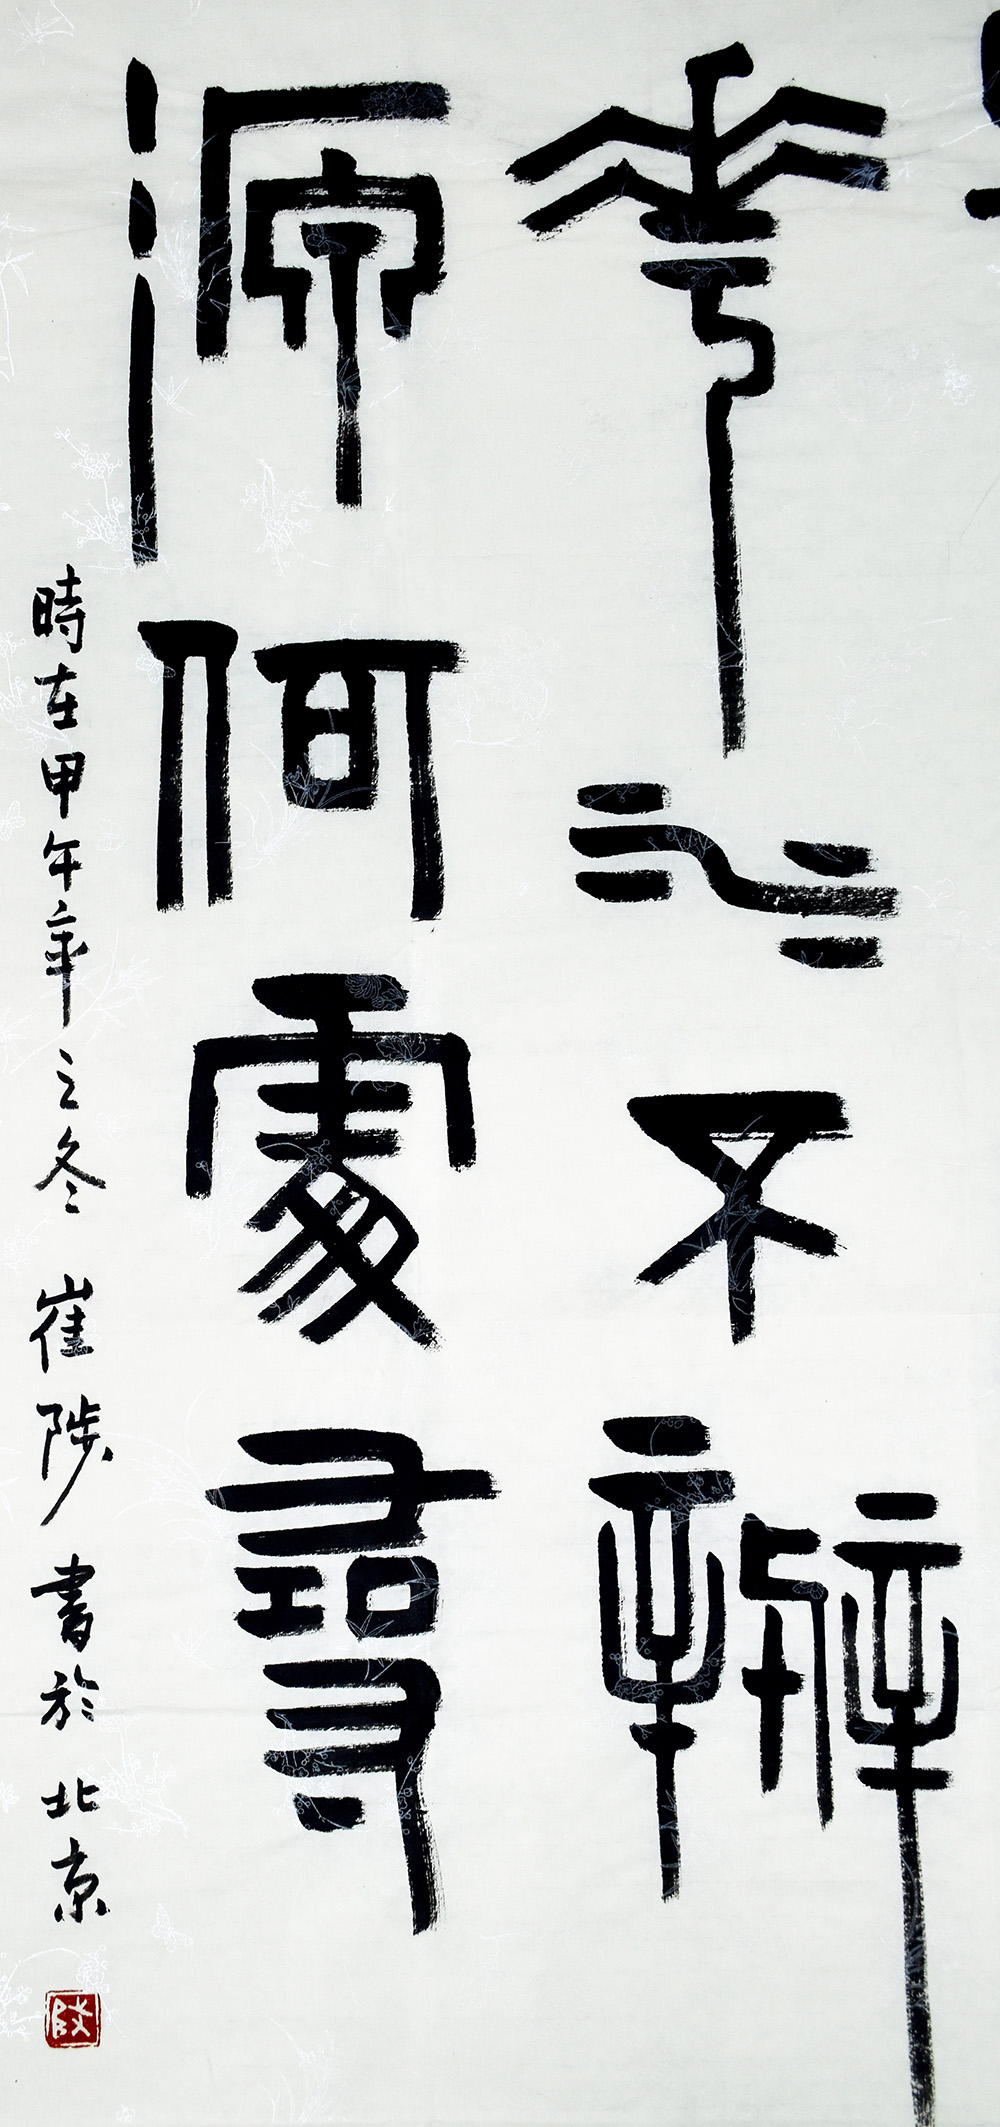 華水不辨
源何處尋
時在甲午年之冬 崔陟 書於北京